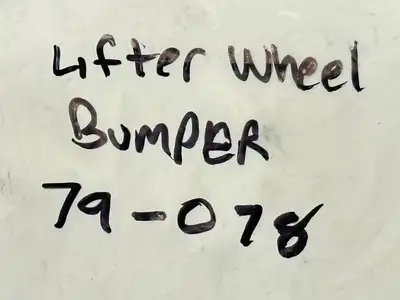 Lifter Wheel
BUMPER
79-078